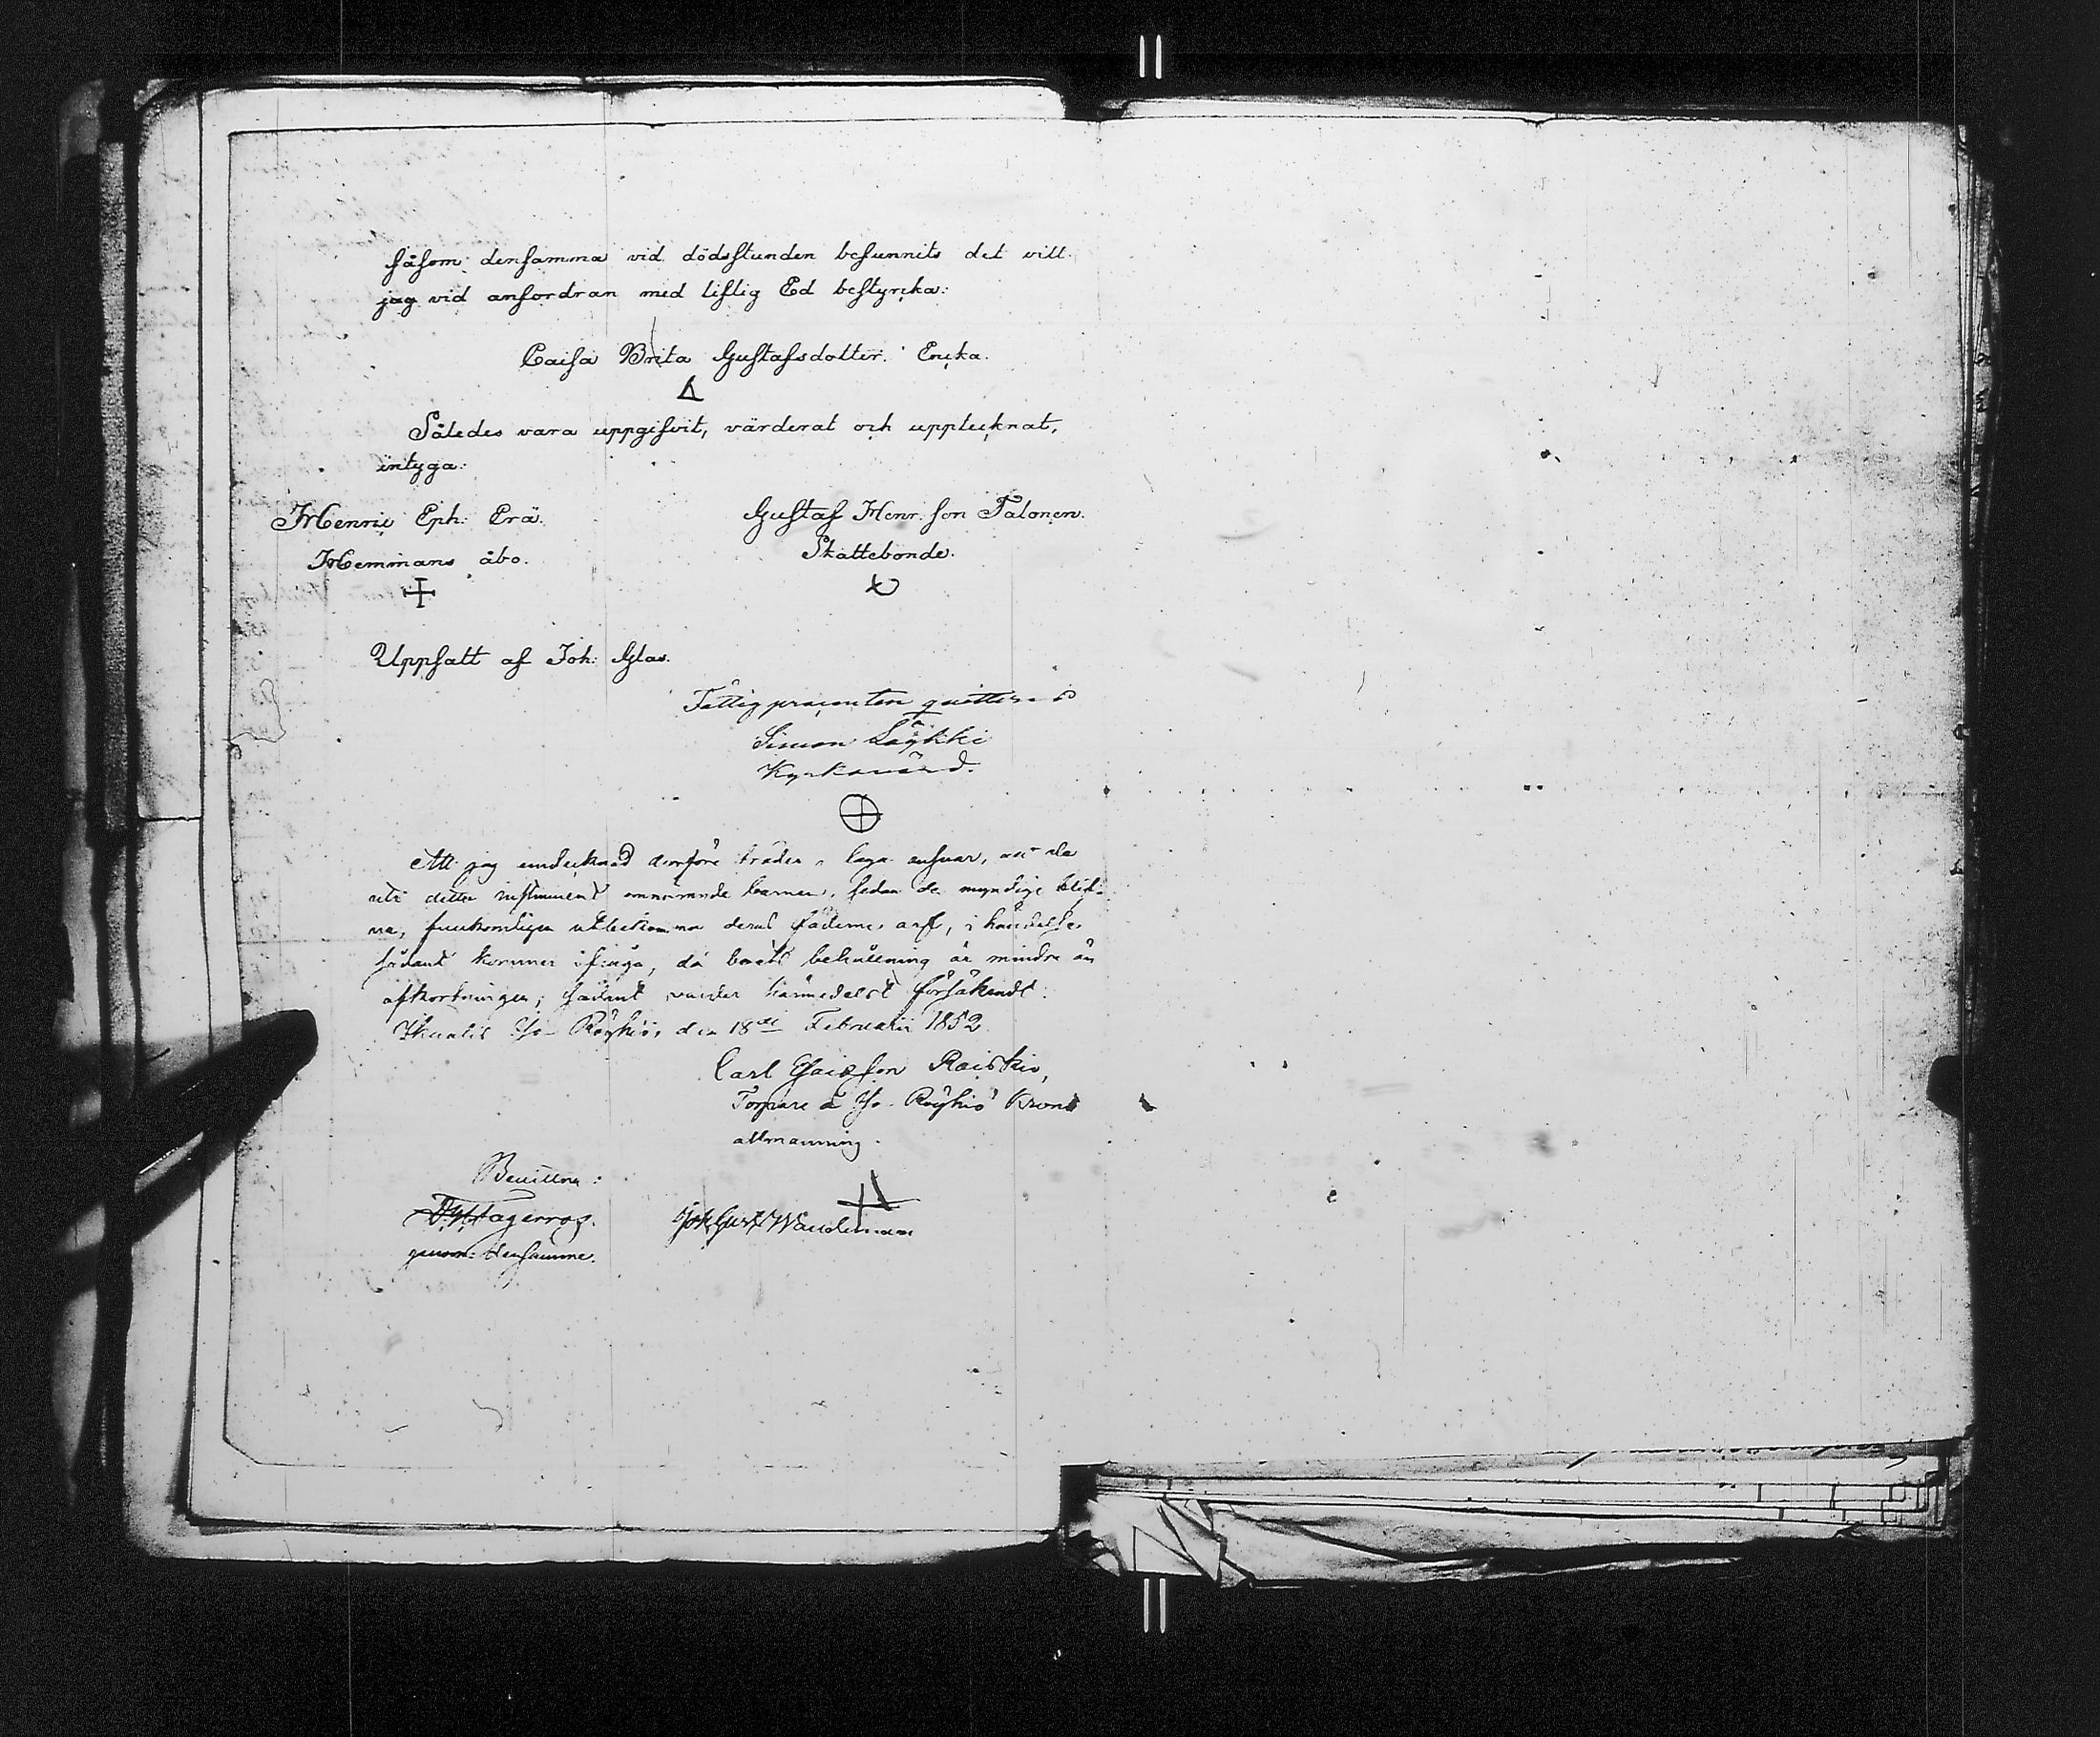 såsom densamma vid dödsstunden befunnits det vill
jag vid anfordran med liflig Ed bestyrcka:
Caisa Brita Gustafsdotter. Encka.
Således vara uppgifvit, värderat och upptecknat,
intyga:
Henric Eph: Erä. Gustaf Henr. son Talonen.
Hemmans åbo. Skattebonde.
Uppsatt af Joh: Glas.
Fattigprocenten quitteras
Simon Läykki
Kyrkovärd.
Att jag undertecknad derföre träder i laga ansvar, att de
uti detta instrument omnämnde barnen, sedan de myndige blif-
va, utbekomma deras fäderne arf, i händelse
sådant kommer ifråga, då boets behållning är mindre än
afkortningen; sådant varder härmedelst försäkradt.
Röykiö, den 18de Februarii 1852.
Carl Esaiæson Raiskio,
Torpare å Yo-Röykiö Krono
allmänning.
Bevittna:
Joh Gust Wandeman
genom: densamme.